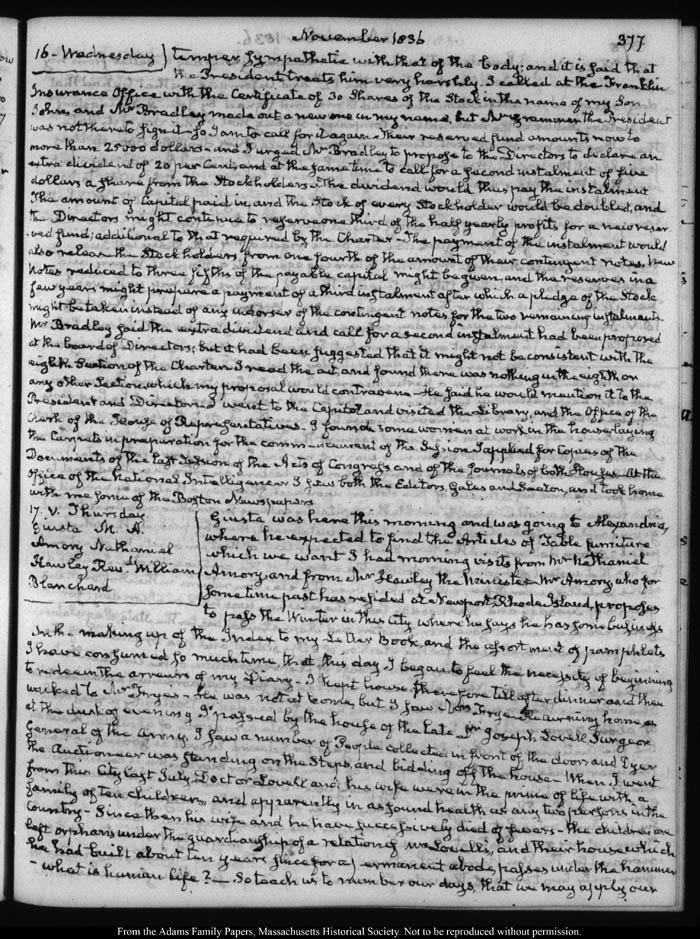 November 1836
377
16. Wednesday } temper sympathetic with that of the body; and it is said that
the President treats him very harshly. I called at the Franklin
Insurance Office with the Certificate of 30 Shares of the Stock in the name of my Son
John, and Mr Bradley made out a new one in my name, but Mr Grammer the President
was not there to sign it. So I am to call for it again. Their reserved fund amounts now to
more than 25000 dollars. and I urged Mr Bradley to propose to the Directors to declare an
extra dividend of 20 per Cent, and at the same time to call for a second instalment of five
dollars a share from the Stockholders. The dividend would thus pay the instalment
The amount of Capital paid in, and the Stock of every Stockholder would be doubled, and
the Directors might continue to reserve one third of the half yearly profits for a new reser
ved fund; additional to that required by the Charter. The payment of the instalment would
also release the Stock holders from one fourth of the amount of their contingent notes. New
Notes reduced to three fifths of the payable capital might be given, and the reserves in a
few years might prepare a payment of a third instalment after which a pledge of the Stock
might be taken instead of any indorser of the contingent notes for the two remaining instalments.
Mr Bradley said the extra dividend and call for a second instalment had been proposed
at the board of Directors; but it had been suggested that it might not be consistent with the
eighth Section of the Charter. I read the act, and found there was nothing in the eighth or
any other Section, which my proposal would contravene. He said he would mention it to the
President and Directors. I went to the Capitol and visited the Library, and the Office of the
Clerk of the House of Representatives. I found some women at work in the house laying
the Carpets in preparation for the commencement of the Session. I applied for Copies of the
Documents of the last Session of the Acts of Congress and of the Journals of both Houses. At the
Office of the National Intelligencer I saw both the Editors, Gales and Seaton, and took home
with me some of the Boston Newspapers
17. V. Thursday
Giusta M. A.
Amory Nathaniel
Hawley Revd William
Blanchard
Giusta was here this morning and was going to Alexandria,
where he expected to find the Articles of Table furniture
which we want. I had morning visits from Mr Nathaniel
Amory and from Mr Hawley the Minister. Mr Amory who for
some time past has resided at Newport, Rhode Island, proposes
to pass the Winter in this City where he says he has some business
In the making up of the Index to my Letter Book, and the assortment of pamphlets
I have consumed so much time, that this day I began to feel the necessity of beginning
to redeem the arrears of my Diary. I kept house therefore till after dinner and then
walked to Mr Frye's. He was not at home, but I saw Mrs Frye. Returning home, or
at the dusk of evening I passed by the house of the late Dr Joseph Lovell Surgeon
General of the Army. I saw a number of People collected in front of the door and Dyer
the Auctioneer was standing on the Steps, and bidding off the house. When I went
from this City last July, Doctor Lovell and his wife were in the prime of life with a
family of ten children, and apparently in as sound health as any two persons in the
Country. Since then his wife and he have successively died of fevers. the children are
left orphans under the guardianship of a relation of Mrs Lovell's, and their house which
he had built about ten years since for a permanent abode, passes under the hammer
- what is human life? - So teach us to number our days, that we may apply our
From the Adams Family Papers, Massachusetts Historical Society. Not to be reproduced without permission.